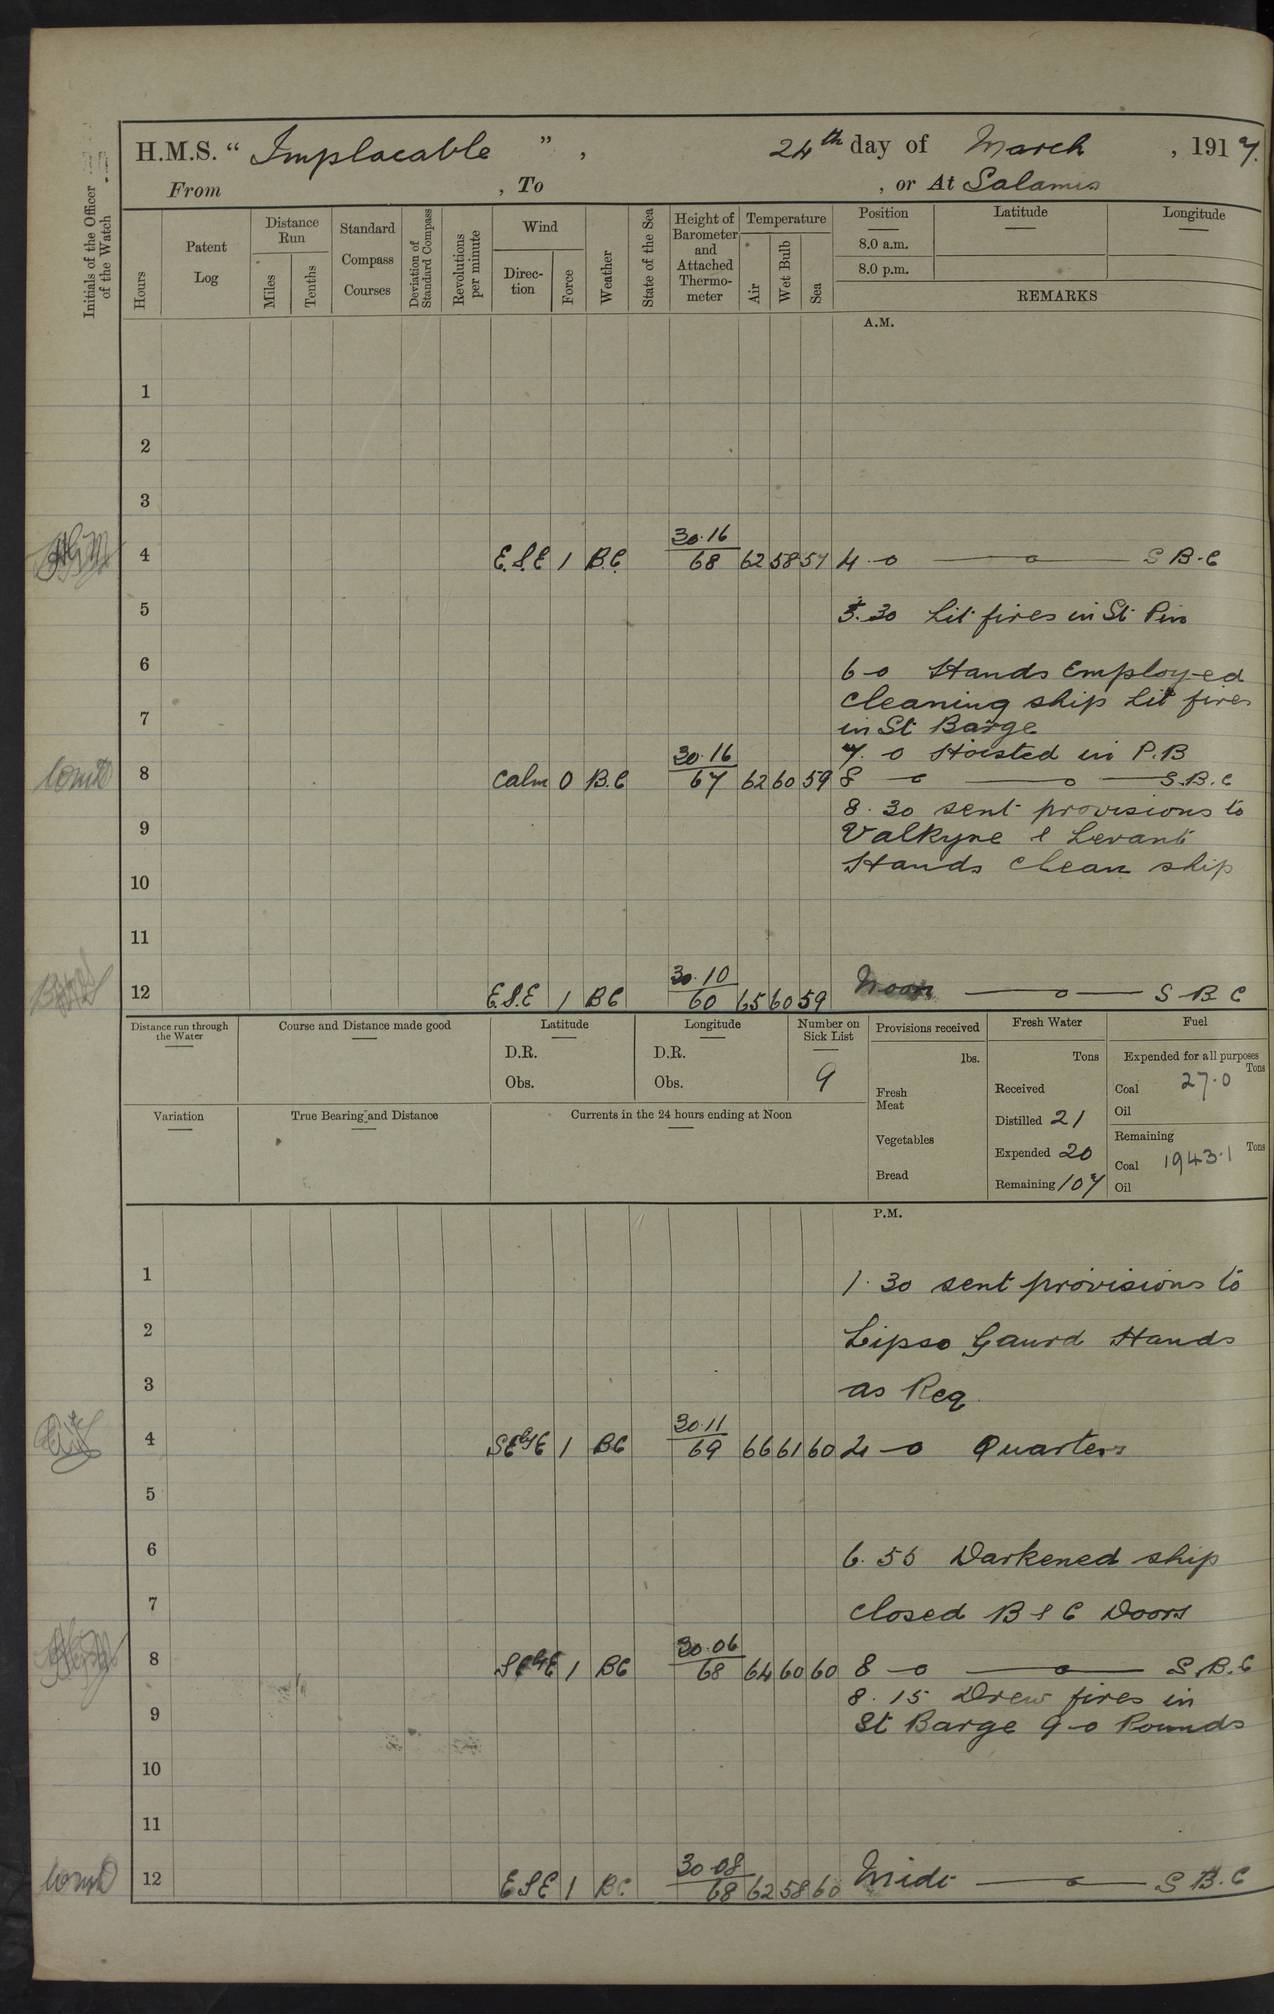 H.M.S. “ Implacable ” , 24th day of March , 1917.
From , To , or At Salamis
Initials of the Officer of the Watch
Hours
Patent Log
Distance Run
Miles
Tenths
Standard Compass Courses
Deviation of Standard Compass
Revolutions per minute
Wind
Direc-tion
Force
Weather
State of the Sea
Height of Barometer and Attached Thermo-meter
Temperature
Air
Wet Bulb
Sea
Position
8.0 a.m.
8.0 p.m.
Latitude
Longitude
REMARKS
A.M.
1
2
3
30.16
4 E.S.E 1 B.C. 68 62 58 57 4-0 S B.C
5 5.30 Lit fires in St Pin
6 6-0 Hands Employed
cleaning ship Lit fires
7 in St Barge
30.16 7.0 Hoisted in P.B
8 Calm 0 B.C 67 62 60 59 8 - 0 S.B.C
8.30 sent provisions to
9 Valkyne & Levant
Hands clean ship
10
11
30.10
12 E.S.E 1 BC 60 65 60 59 Noon S B C
Distance run through the Water
Course and Distance made good
Latitude
D.R.
Obs.
Longitude
D.R.
Obs.
Number on Sick List
9
Provisions received
lbs.
Fresh Meat
Vegetables
Bread
Fresh Water
Tons
Received
Distilled 21
Expended 20
Remaining 107
Fuel
Expended for all purposes
Tons
Coal 27.0
Oil
Remaining
Tons
Coal 1943.1
Oil
Variation
True Bearing and Distance
Currents in the 24 hours ending at Noon
P.M.
1 1.30 sent provisions to
2 Lipso Gaurd Hands
3 as Req.
30.11
4 SEbyE 1 BC 69 66 61 60 4-0 Quarters
5
6 6.55 Darkened ship
7 closed B & C Doors
30.06
8 SEbyE 1 BC 68 64 60 60 8-0 S.B.C
8.15 Drew fires in
9 St Barge 9-0 Rounds
10
11
30.08
12 ESE 1 BC 68 62 58 60 Midt S B.C